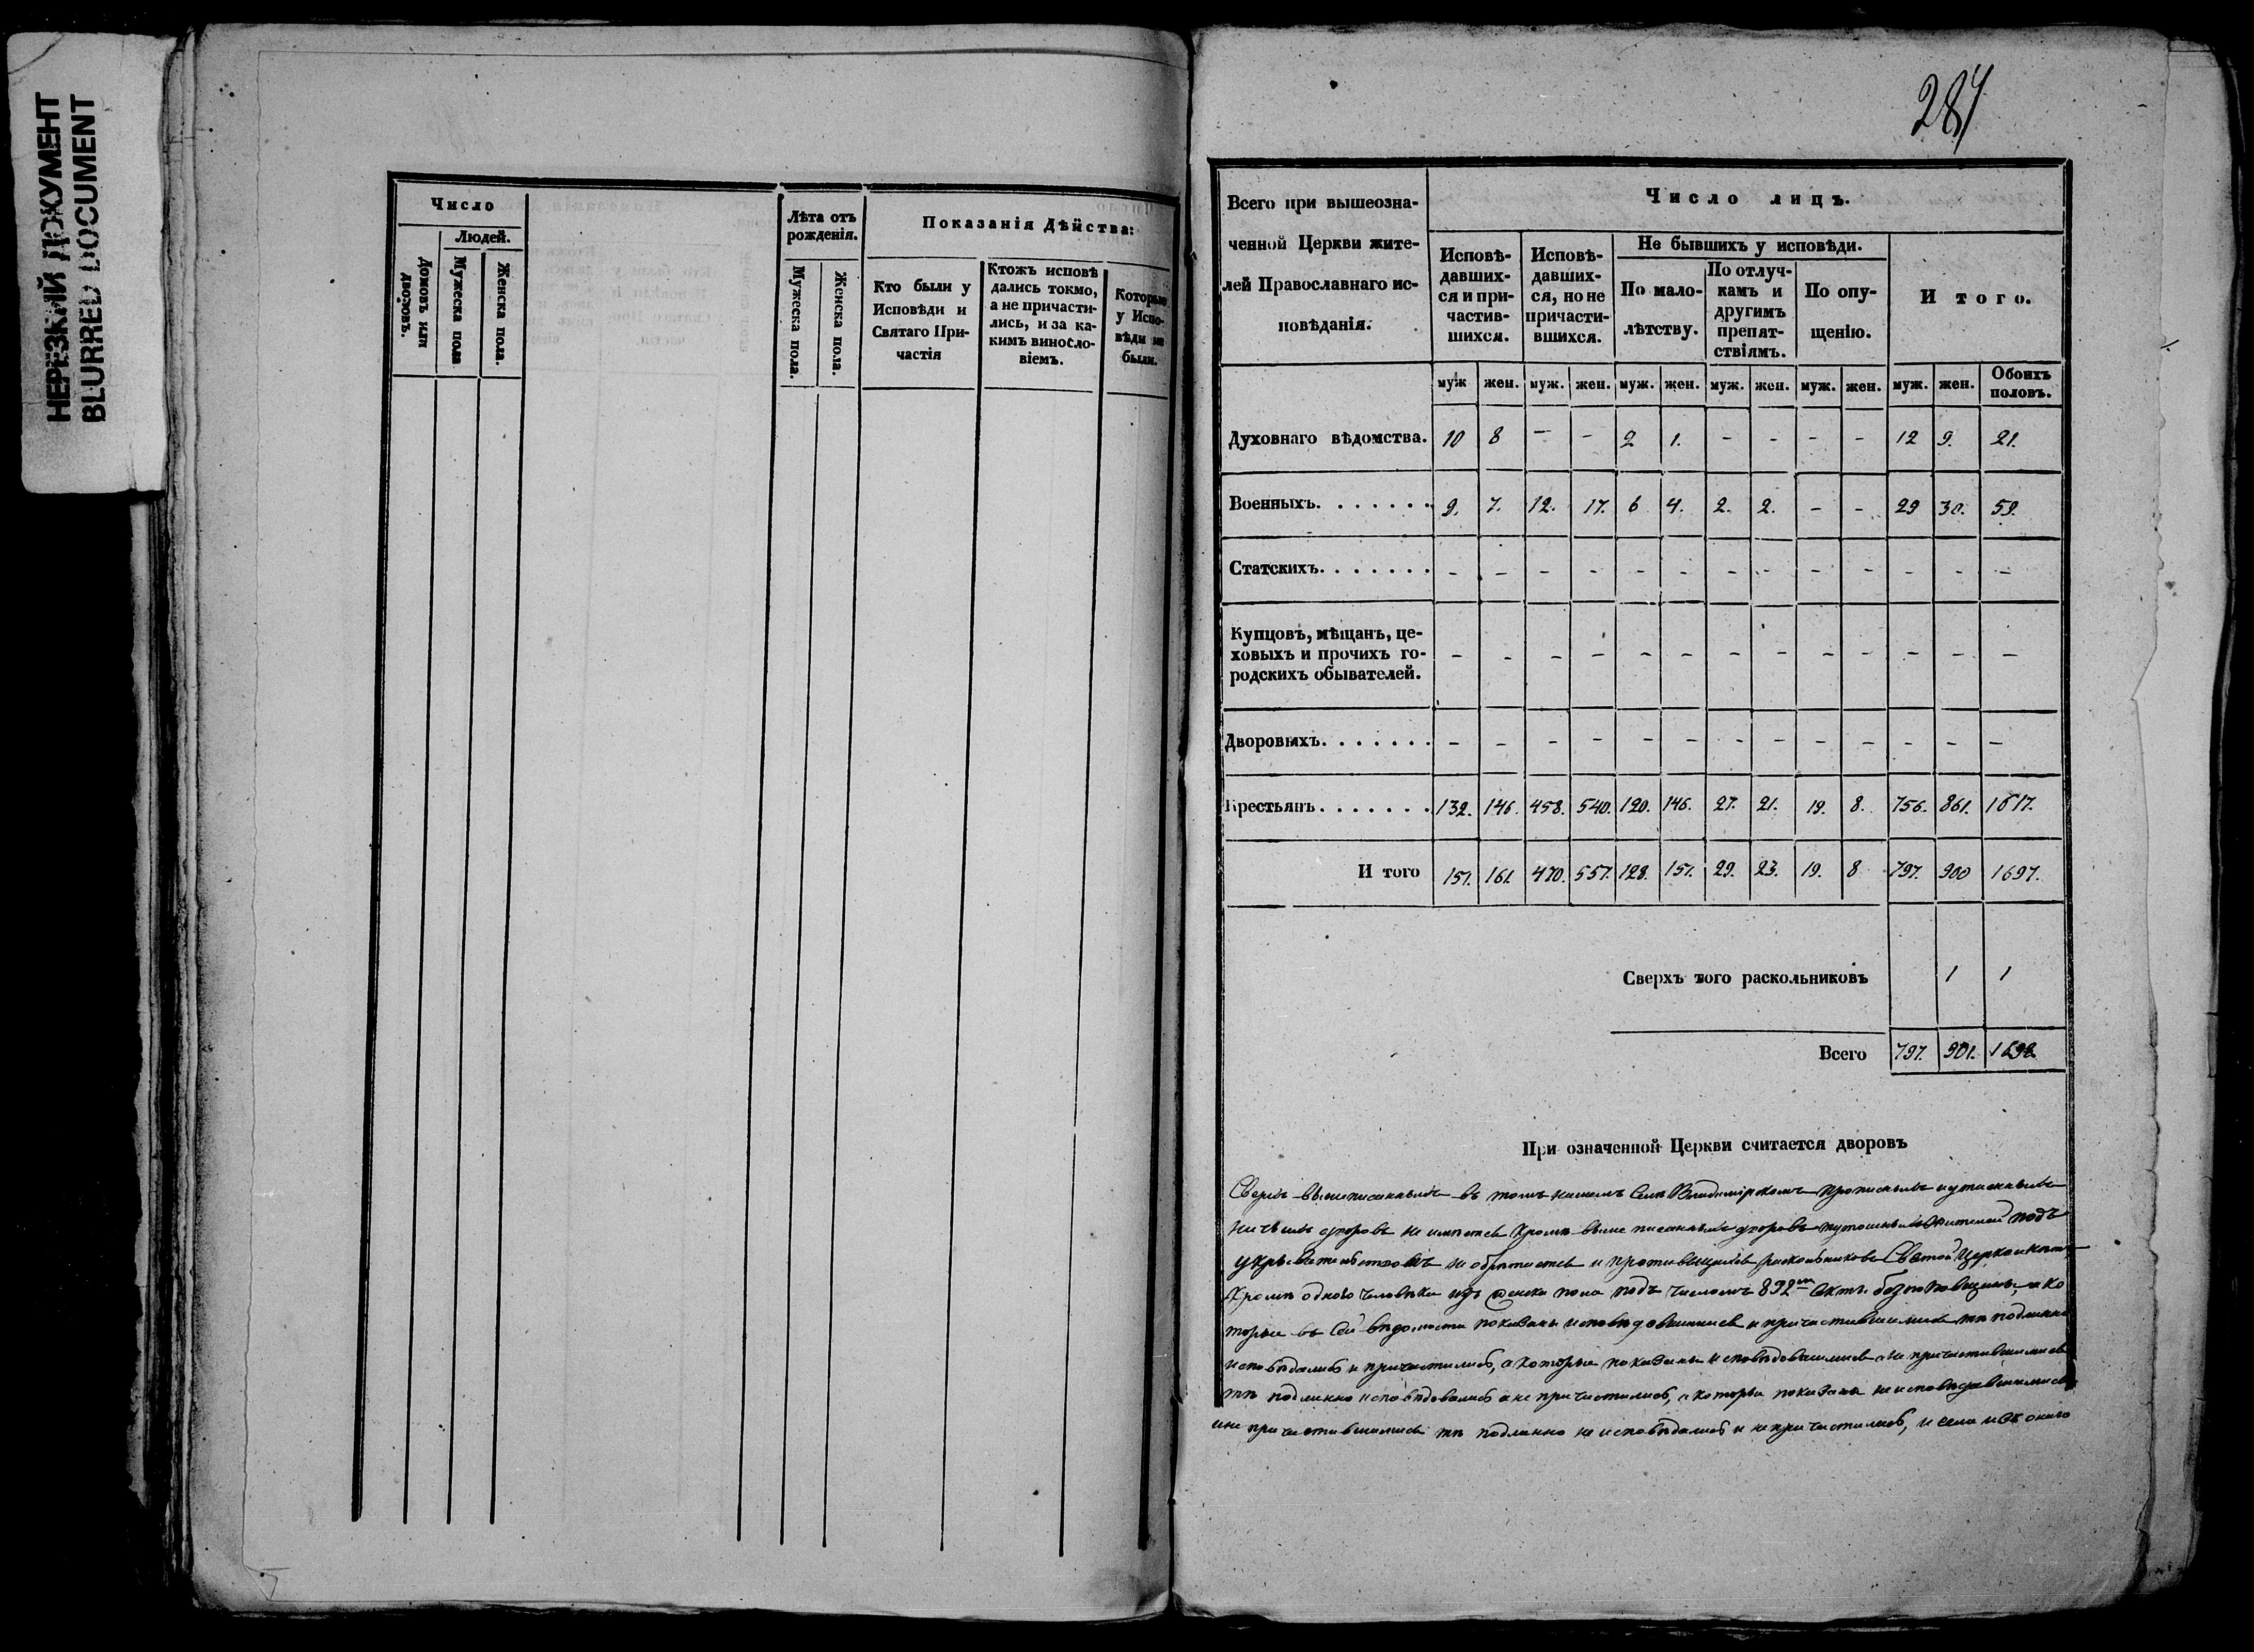 НЕРЕЗКИЙ ДОКУМЕНТ
BLURRED DOCUMENT
Число
Людей.
Домовъ или
дворовъ.
Мужеска пола
Женска пола.
Лѣта отъ
рожденія.
Мужеска пола.
Женска пола.
Показанія Дѣйства:
Кто были у
Исповѣди и
Святаго При-
частія
Ктожъ исповѣ
дались токмо,
а не причасти-
лись, и за ка-
кимъ винословіемъ.
Которые
у Испо-
вѣди не
были.
284
Всего при вышеозна-
ченной Церкви жите-
лей Православнаго ис-
повѣданія.
Число лицъ.
Исповѣ-
давших-
ся и при-
частив-
шихся.
Исповѣ-
давших-
ся, но не
причасти-
вшихся.
Не бывшихъ у исповѣди.
По мало-
лѣтству.
По отлуч-
камъ и
другимъ
препят-
ствіямъ.
По опу-
щенію.
И того.
муж жен. муж. жен. муж. жен. муж. жен. муж. жен. муж. жен. Обоихъ половъ.
Духовнаго вѣдомства. 10 8 — - 2 1. - - - - 12 9. 21.
Военныхъ. . . . . . . 9. 7. 12. 17. 6 4. 2. 2. - - 29 30. 59.
Статскихъ. . . . . . . - - - - - - - - - - - - -
Купцовъ, мѣщанъ, це-
ховыхъ и прочихъ го- - - - - - - - - - - - - -
родскихъ обывателей.
Дворовыхъ. . . . . . . - - - - - - - - - - - - -
Крестьянъ. . . . . . . 132. 146. 458. 540. 120. 146. 27. 21. 19. 8. 756. 861. 1617.
И того 151. 161. 470. 557. 128. 151. 29. 23. 19. 8 797. 900 1697.
Сверхъ того раскольниковъ 1 1
Всего 797. 901. 1698.
При означенной Церкви считается дворовъ
Сверхъ вышеписанныхъ въ томъ нашемъ Селѣ Владимірскомъ прописныхъ и утаенныхъ
ни чьихъ дворовъ не имѣется Кромѣ выше писанныхъ дворовъ жителей подъ
укрывательствомъ не обрѣтается и противящихся раскольниковъ Святой Церкви
Кромѣ одного человѣка женска пола подъ числомъ 892 Секты безпоповщины, а ко
торые въ Сей вѣдомости показаны исповѣдовшимися и причастившимися тѣ подлинно
исповѣдались и причастились, а которые показаны исповѣдовшимися а не причастившимися
тѣ подлинно исповѣдовались а не причастились, а которые показаны не исповѣдавшимися
и не причастившимися тѣ подлинно не исповѣдались и не причастились, и если